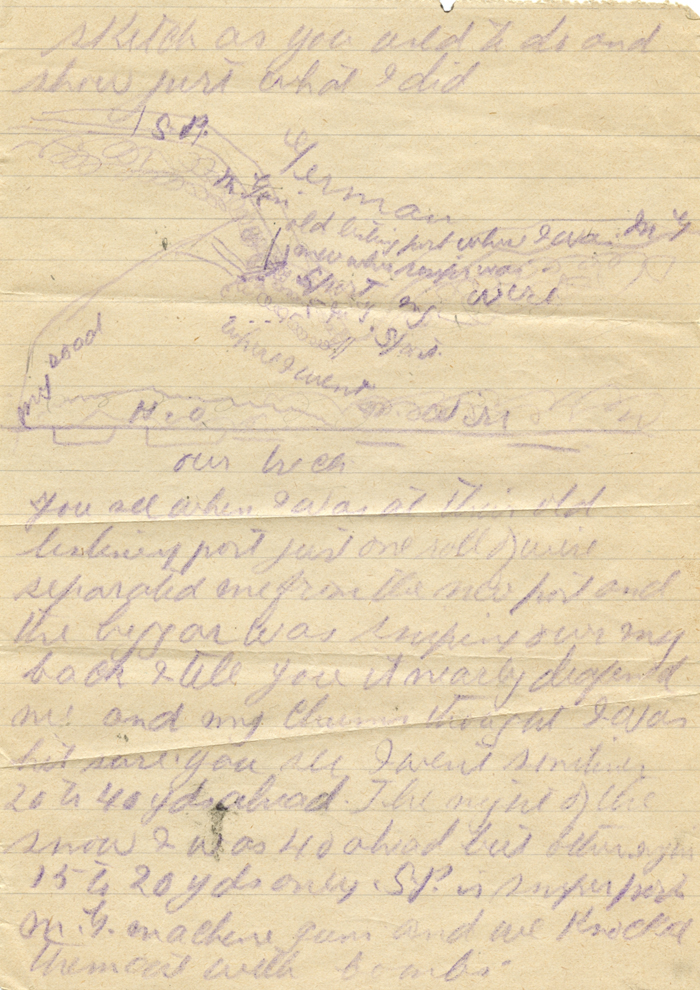 sketch as you used to do and
show just what I did
S.P.
German
M. Gun
old listing post where I was M G
new where sniper was
S post
wire
M G, S post
where I went
my road
H.Q.
wire
our trech
You see when I was at their old
listining post just one roll of wire
separated me from the new post and
the beggar was sniping over my
back I tell you it nearly deafened
me! and my chums thought I was
hit sure. you see I went
20 to 40 yds ahead. The night of the
snow I was 40 ahead but
15 to 20 yds only. S.P. is sniper post
M.G. machine guns and we Knocked
them out with bombs.